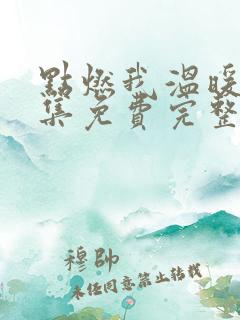 點燃我溫暖
集免費完整
穆帥
未经同意禁止转载